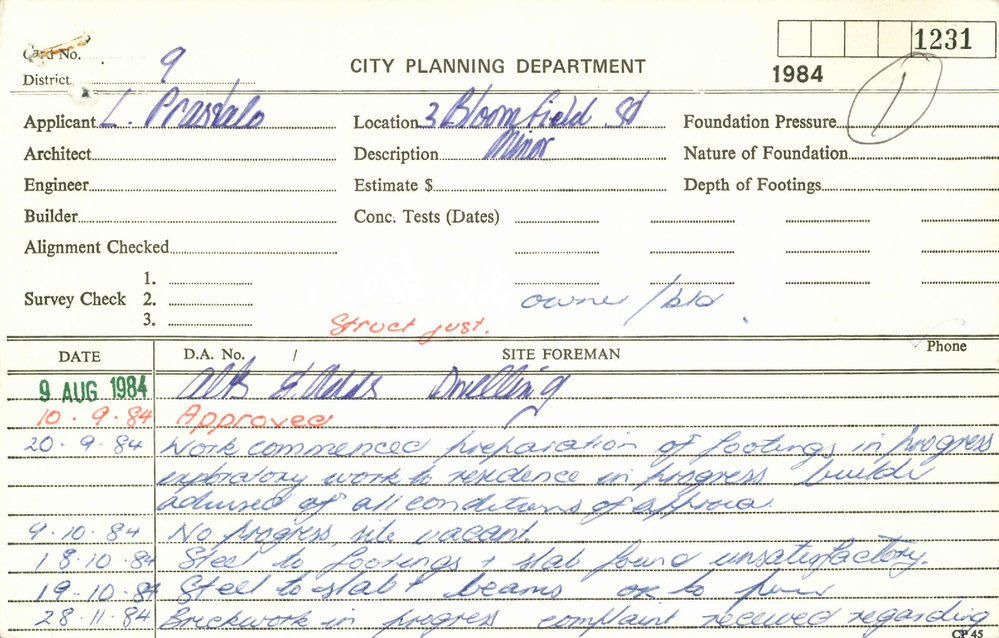 Card No.
1231
District 9
CITY PLANNING DEPARTMENT
1984
1
Applicant L. Prasdalo Location 3 Bloomfield St Foundation Pressure
Architect Description Minor Nature of Foundation
Engineer Estimate $ Depth of Footings
Builder Conc. Tests (Dates)
Alignment Checked
1.
Survey Check 2. owner / bld
3. Struct just.
DATE D.A. No. / SITE FOREMAN Phone
9 AUG 1984 Alts & Adds Dwelling
10.9.84 Approved
20.9.84 Work commenced preparation of footings in progress
exploratory work to residence in progress builder
advised of all conditions of approval
9.10.84 No progress site vacant
18.10.84 Steel to footings & slab found unsatisfactory.
19.10.84 Steel to slab & beams ok to pour
28.11.84 Brickwork in progress complaint received regarding
CP 45